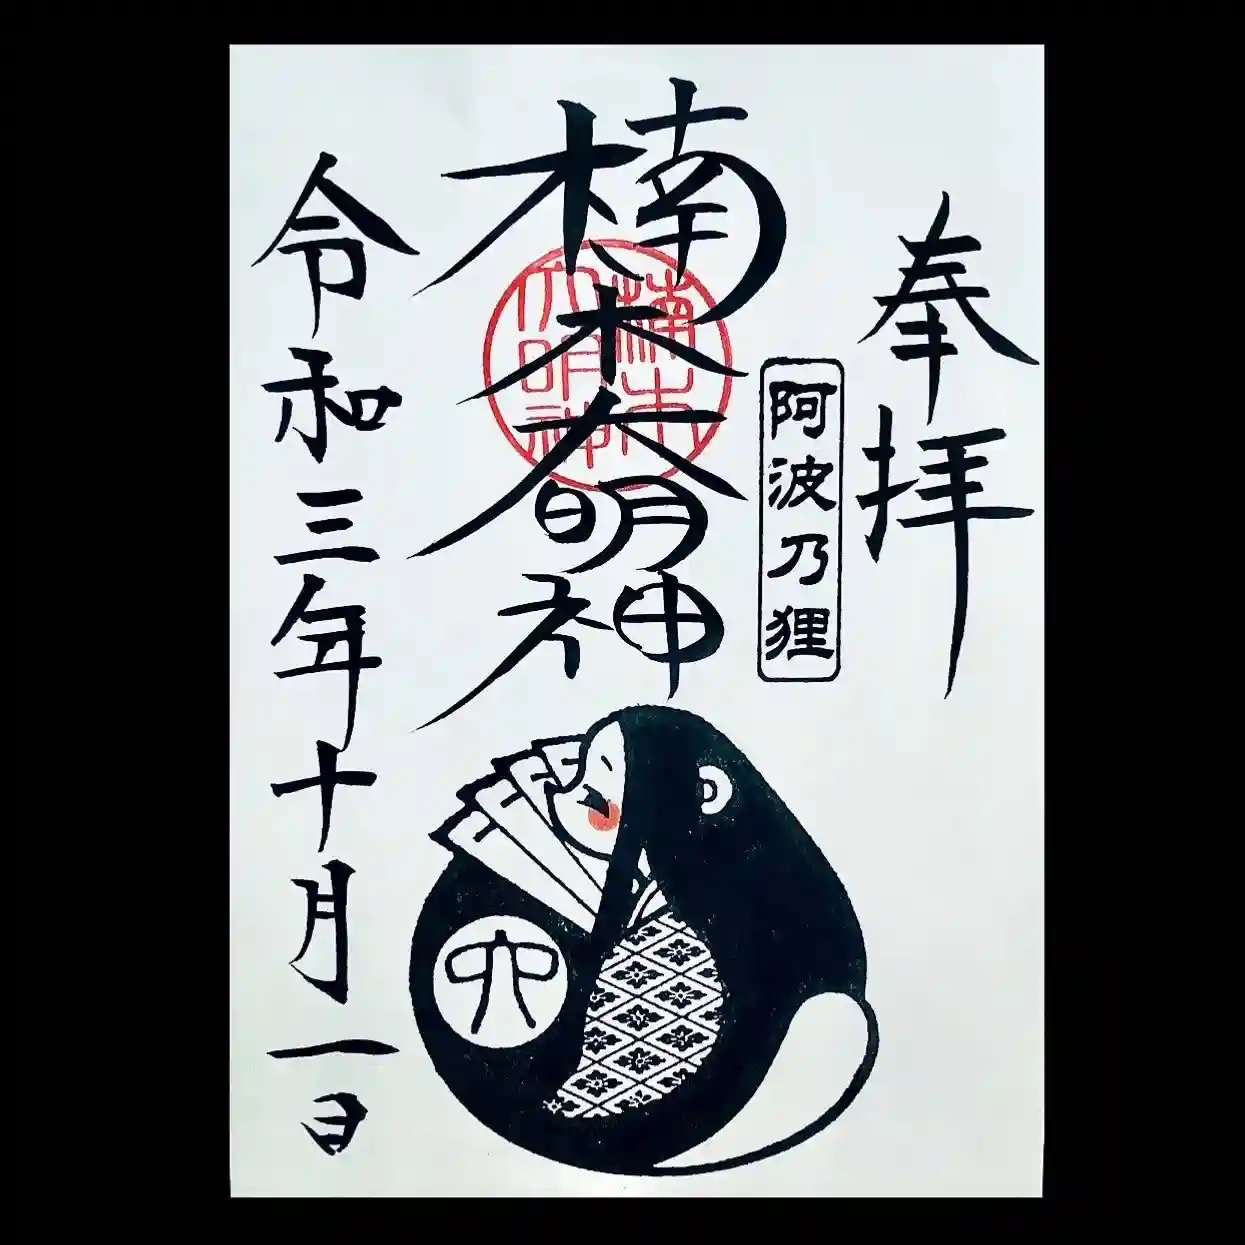 奉拝
阿波乃狸
楠木大明神
楠木
大明神
令和三年十月一日
六